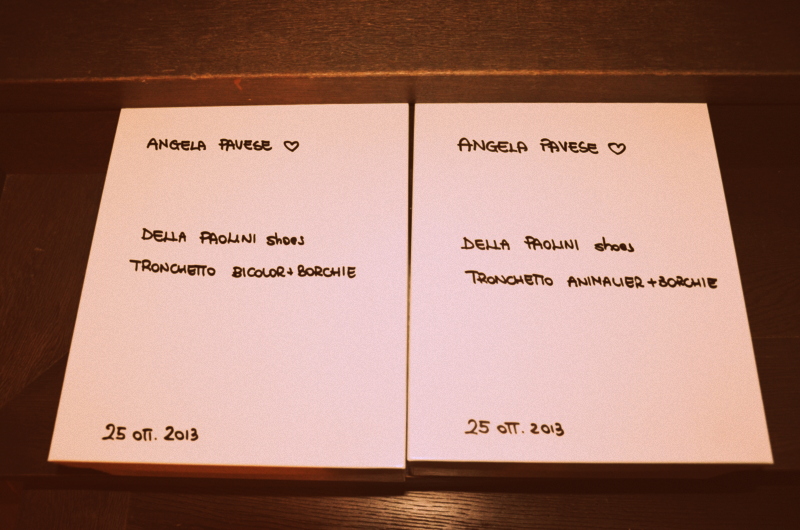 ANGELA PAVESE ♡
DELLA PAOLINI shoes
TRONCHETTO BICOLOR+BORCHIE
25 OTT. 2013
ANGELA PAVESE ♡
DELLA PAOLINI shoes
TRONCHETTO ANIMALIER+BORCHIE
25 OTT. 2013